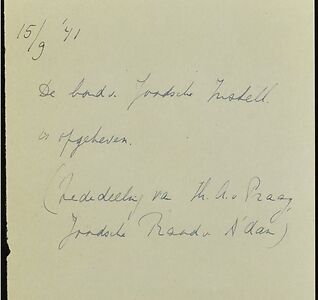 15/9 '41
De bond v. Joodsche Instell.
is opgeheven.
(Mededeeling van Th. A. v Praag,
Joodsche Raad v. A'dam)